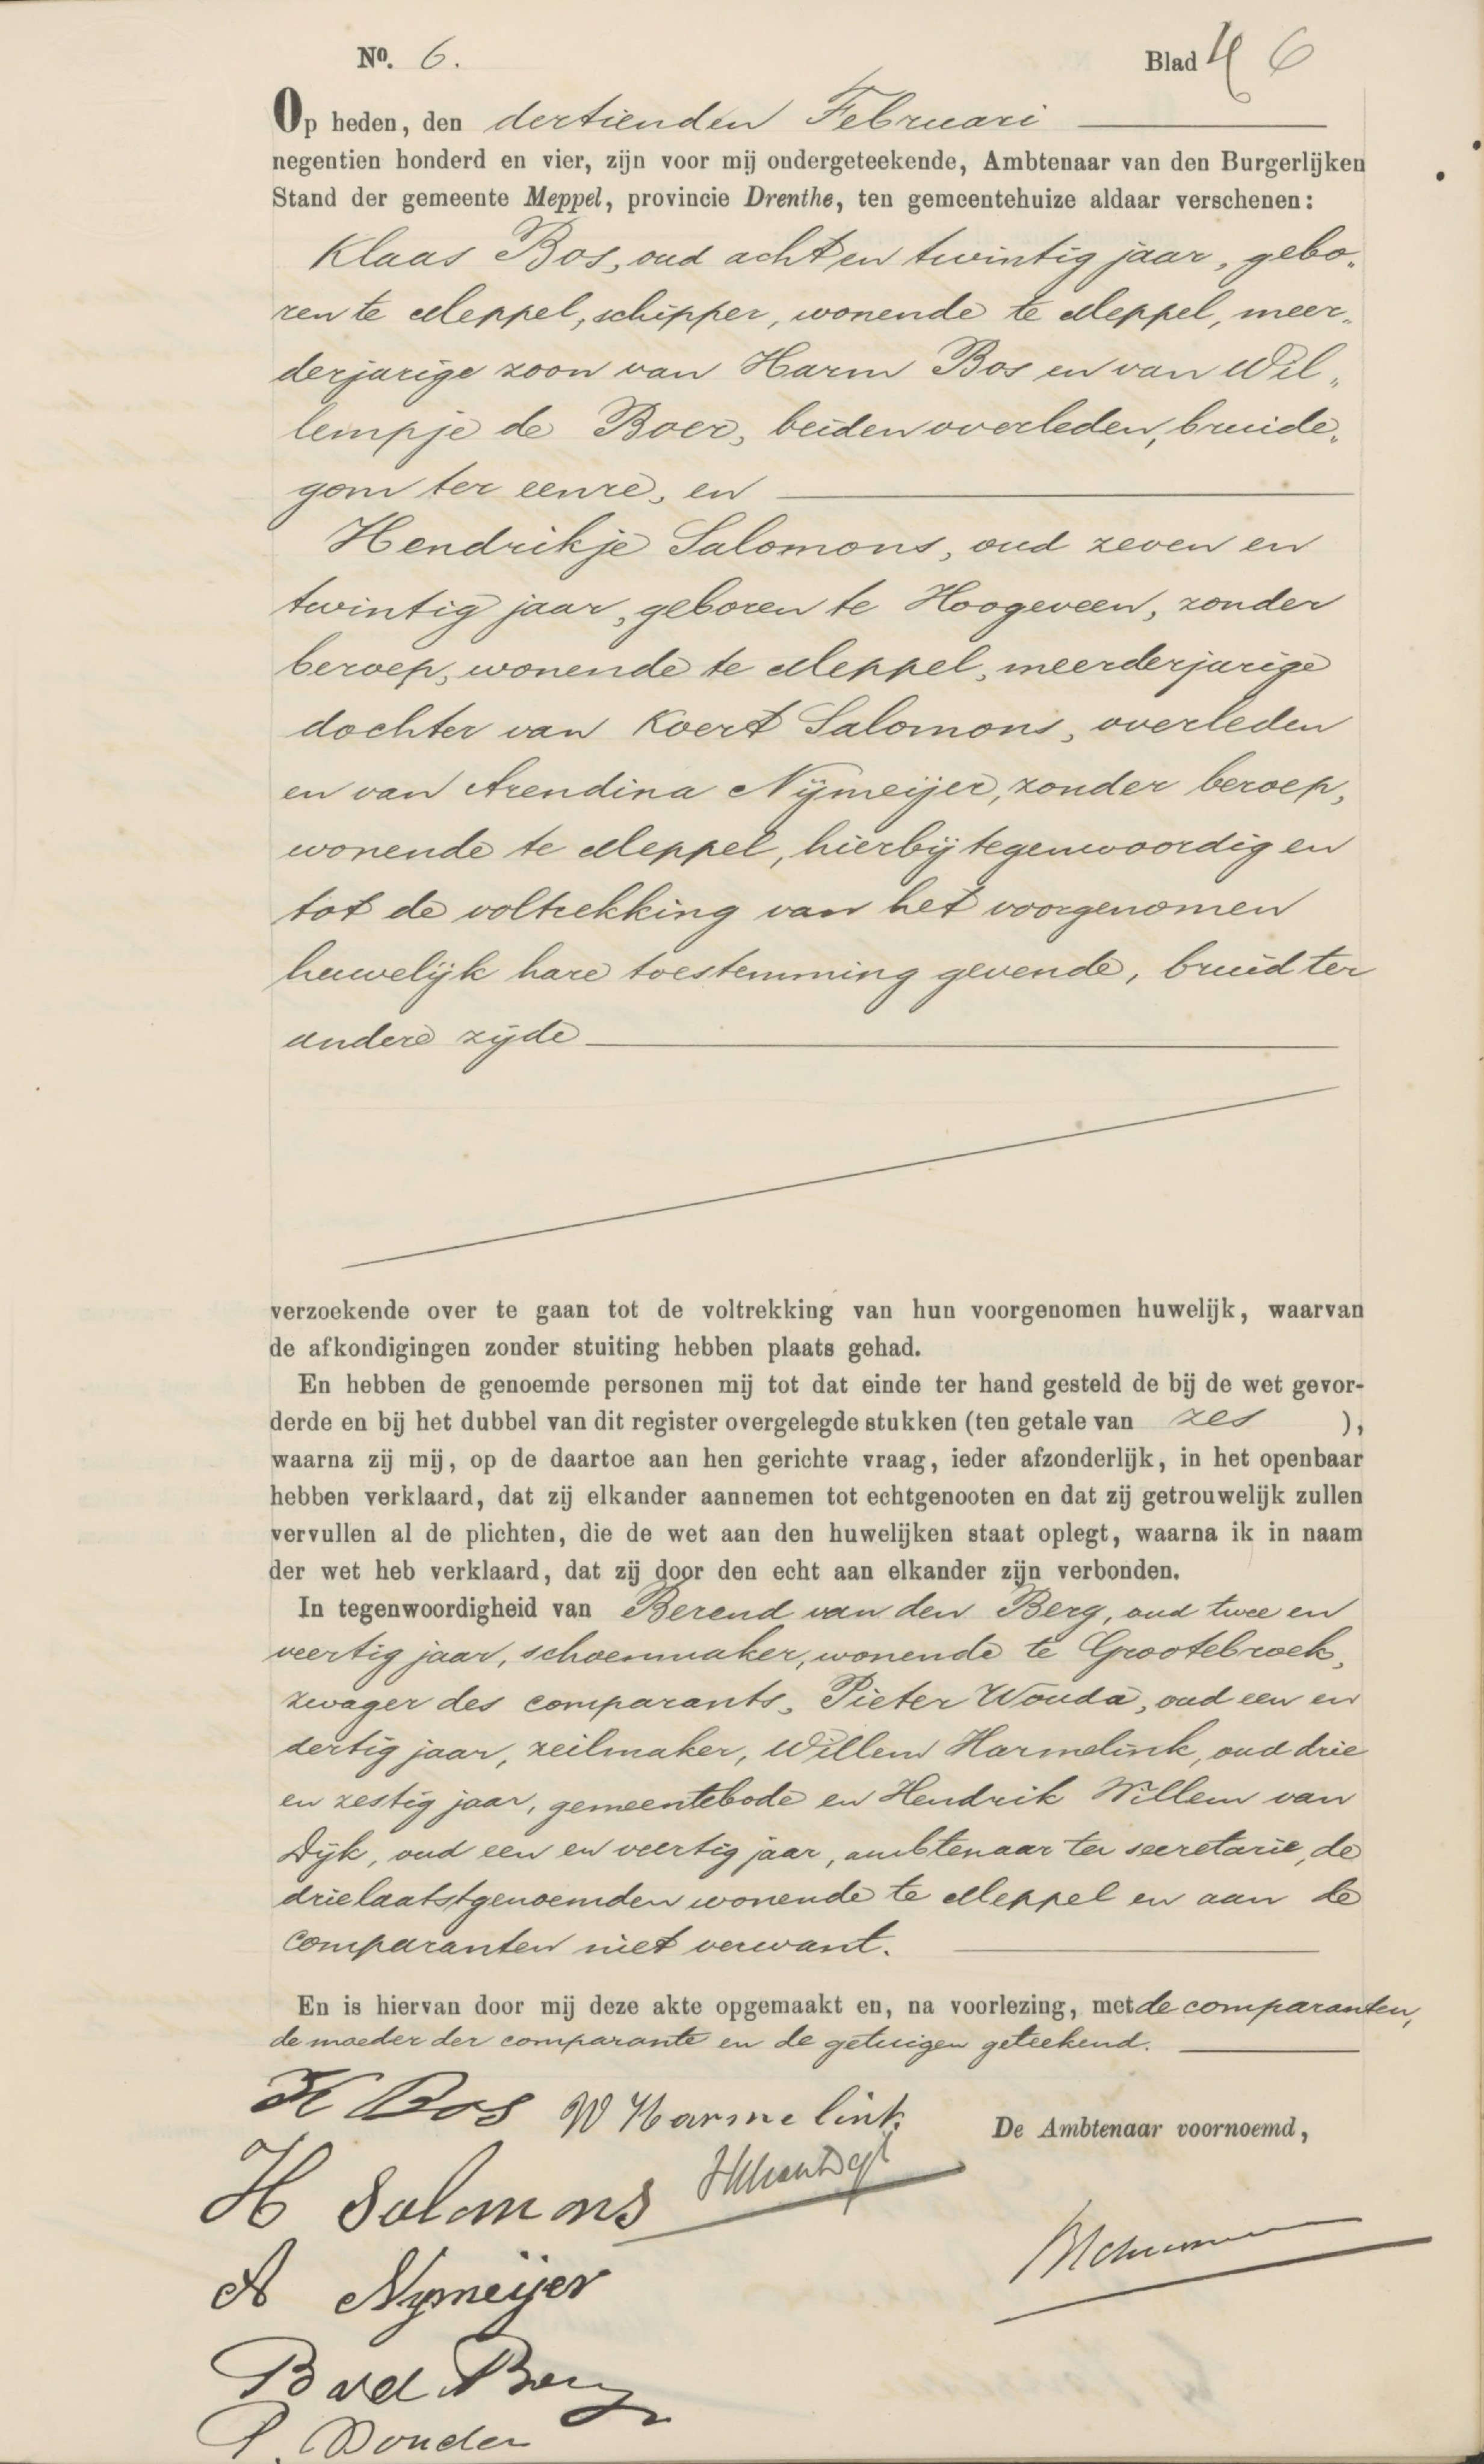 Nº. 6. Blad 4 6
Op heden, den dertienden Februari
negentien honderd en vier, zijn voor mij ondergeteekende, Ambtenaar van den Burgerlijken
Stand der gemeente Meppel, provincie Drenthe, ten gemeentehuize aldaar verschenen:
Klaas Bos, oud acht en twintig jaar, gebo„
ren te Meppel, schipper, wonende te Meppel, meer„
derjarige zoon van Harm Bos en van Wil„
lempje de Boer, beiden overleden, bruide„
gom ter eenre, en
Hendrikje Salomons, oud zeven en
twintig jaar, geboren te Hoogeveen, zonder
beroep, wonende te Meppel, meerderjarige
dochter van Koert Salomons, overleden
en van Arendina Nijmeijer, zonder beroep,
wonende te Meppel, hierbij tegenwoordig en
tot de voltrekking van het voorgenomen
huwelijk hare toestemming gevende, bruid ter
andere zijde
verzoekende over te gaan tot de voltrekking van hun voorgenomen huwelijk, waarvan
de afkondigingen zonder stuiting hebben plaats gehad.
En hebben de genoemde personen mij tot dat einde ter hand gesteld de bij de wet gevor-
derde en bij het dubbel van dit register overgelegde stukken (ten getale van zes ),
waarna zij mij, op de daartoe aan hen gerichte vraag, ieder afzonderlijk, in het openbaar
hebben verklaard, dat zij elkander aannemen tot echtgenooten en dat zij getrouwelijk zullen
vervullen al de plichten, die de wet aan den huwelijken staat oplegt, waarna ik in naam
der wet heb verklaard, dat zij door den echt aan elkander zijn verbonden.
In tegenwoordigheid van Berend van den Berg, oud twee en
veertig jaar, schoenmaker, wonende te Grootebroek,
zwager des comparants, Pieter Wouda, oud een en
dertig jaar, zeilmaker, Willem Harmelink, oud drie
en zestig jaar, gemeentebode en Hendrik Willem van
Dijk, oud een en veertig jaar, ambtenaar ter secretarie, de
drie laatstgenoemden wonende te Meppel en aan de
comparanten niet verwant.
En is hiervan door mij deze akte opgemaakt en, na voorlezing, met de comparanten,
de moeder der comparante en de getuigen geteekend.
K Bos W Harmelink
De Ambtenaar voornoemd,
H Salomons HWvanDijk
A Nijmeijer
B v d Berg
P.